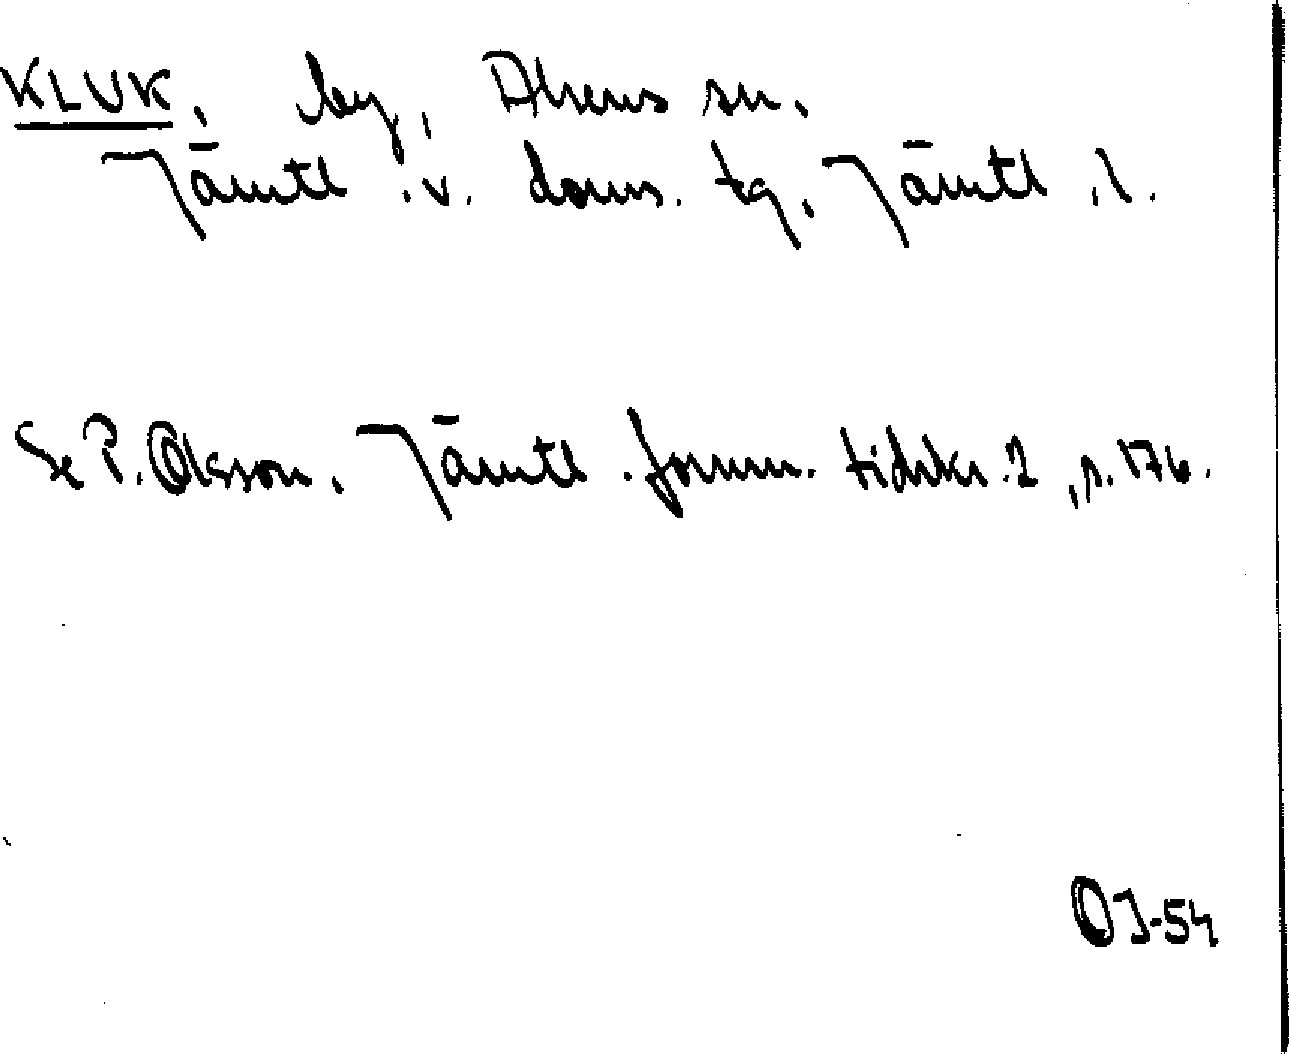 KLUK, by, Alsens sn.
Jämtl.v.doms.tg, Jämtl.l.
Se P.Olsson, Jämtl.fornm.tidskr.2,s.176.
OJ-54